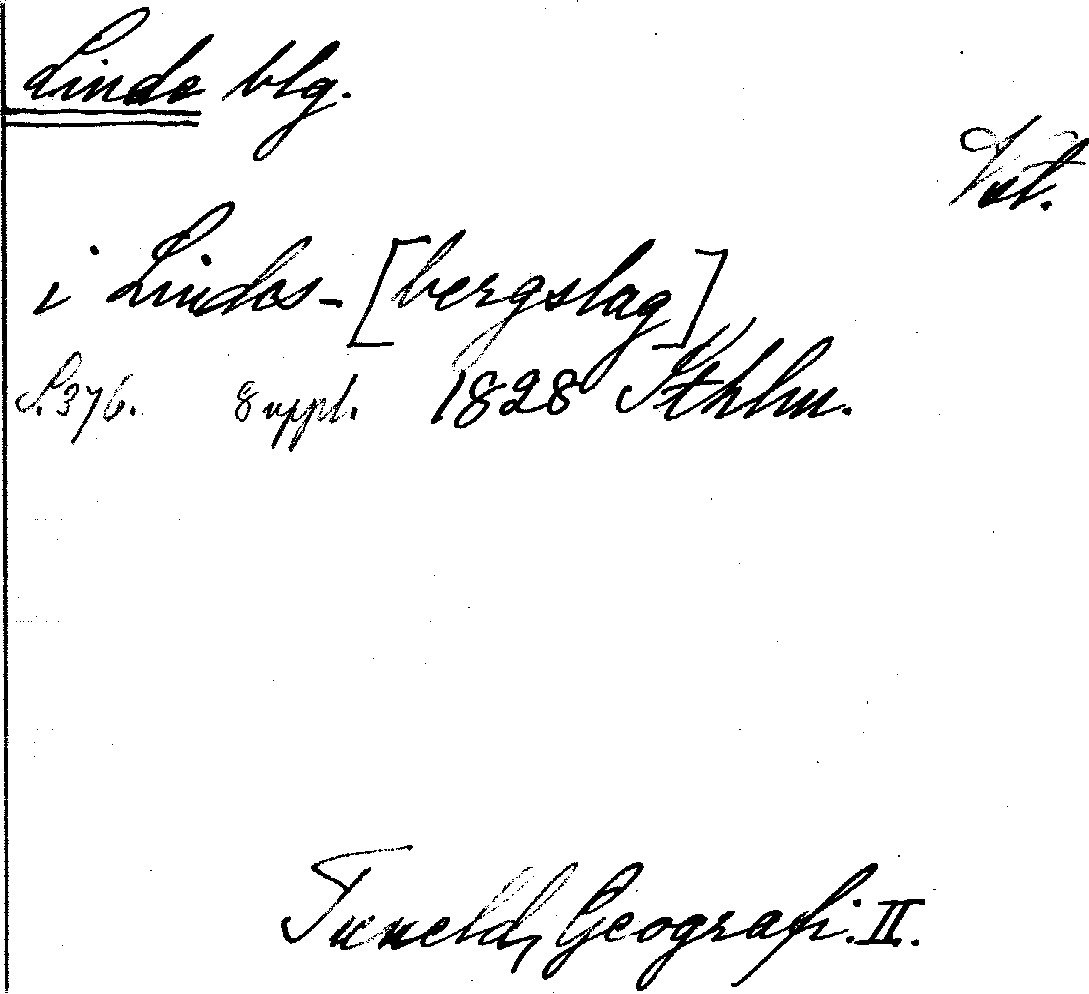 Linde blg.
Vstm.
i Lindes-[bergslag]
S.376. 8 uppl. 1828 Sthlm.
Tuneld, Geografi. II.